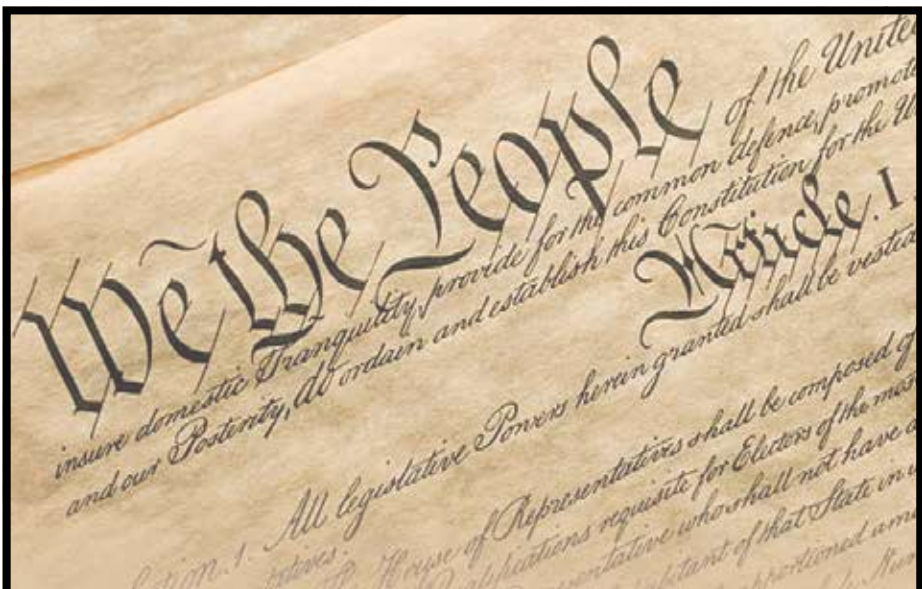 We the People of the United
insure domestic Tranquility, provide for the common defence, promote
and our Posterity, do ordain and establish this Constitution for the U
Article. I
All legislative Powers herein granted shall be vested
House of Representatives shall be composed of
requisite for Electors of the most
who shall not have a
of that State in
apportioned am